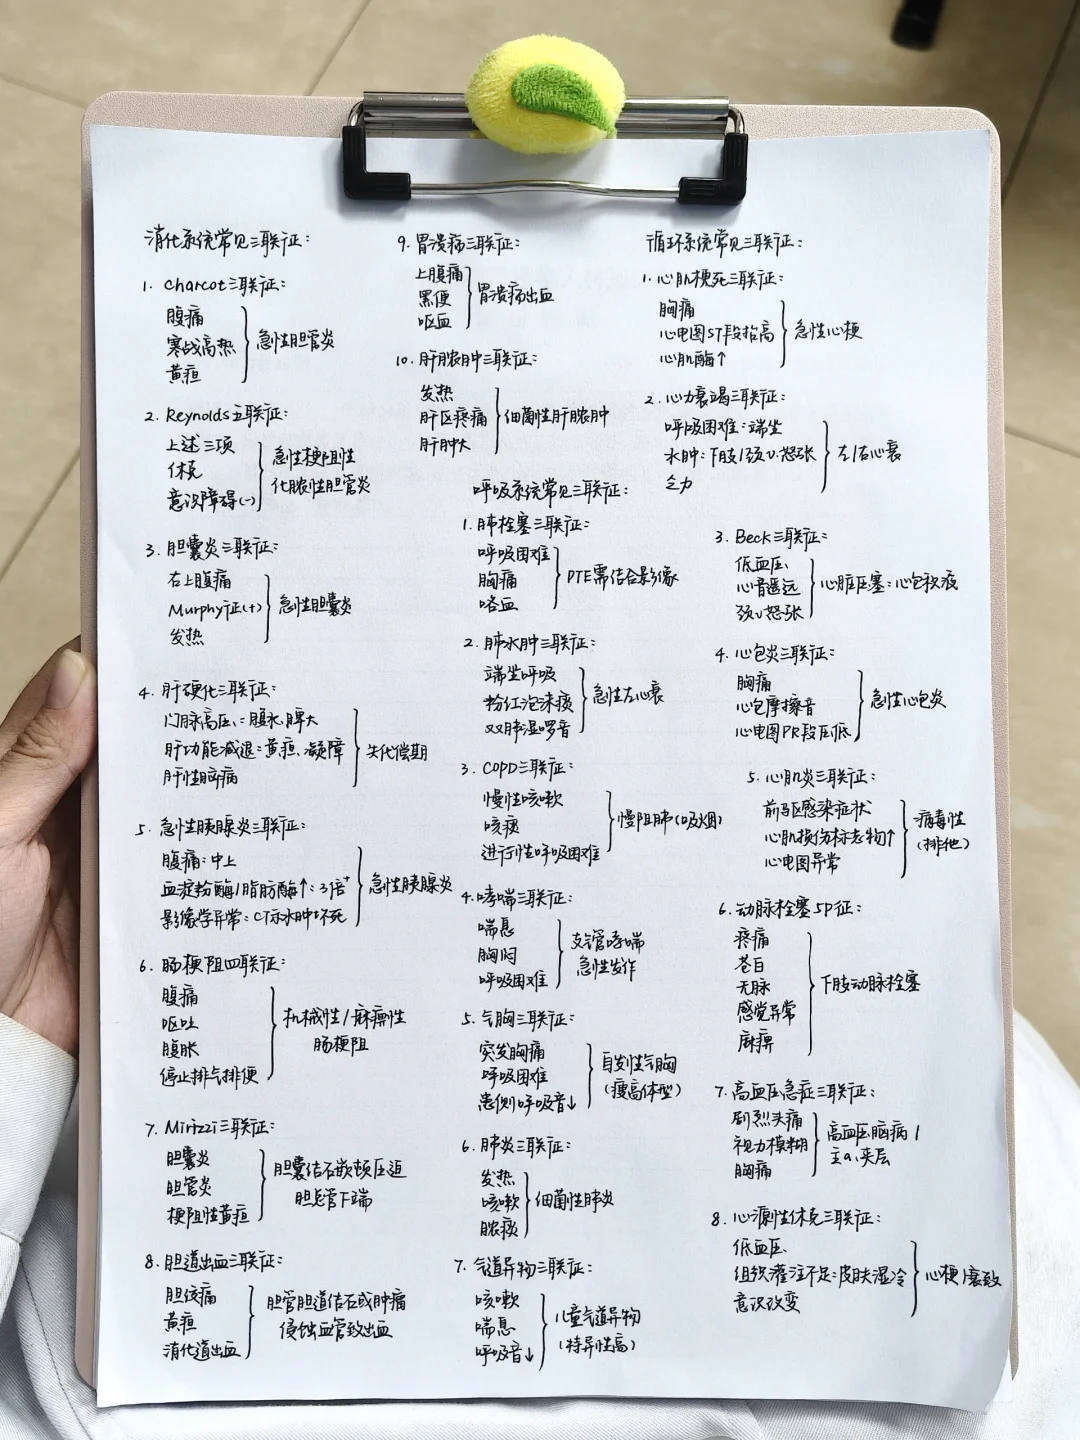 消化系统常见三联征:
1. Charcot三联征:
腹痛
寒战高热
黄疸
急性胆管炎
2. Reynolds五联征:
上述三项
休克
意识障碍(-)
急性梗阻性
化脓性胆管炎
3. 胆囊炎三联征:
右上腹痛
Murphy征(+)
发热
急性胆囊炎
4. 肝硬化三联征:
门脉高压:腹水,脾大
肝功能减退:黄疸、凝障
肝性脑病
失代偿期
5. 急性胰腺炎三联征:
腹痛:中上
血淀粉酶/脂肪酶↑:3倍+
影像学异常:CT示水肿坏死
急性胰腺炎
6. 肠梗阻四联征:
腹痛
呕吐
腹胀
停止排气排便
机械性/麻痹性
肠梗阻
7. Mirizzi三联征:
胆囊炎
胆管炎
梗阻性黄疸
胆囊结石嵌顿压迫
胆总管下端
8. 胆道出血三联征:
胆绞痛
黄疸
消化道出血
胆管胆道结石或肿瘤
侵蚀血管致出血
9. 胃溃疡三联征:
上腹痛
黑便
呕血
胃溃疡出血
10. 肝脓肿三联征:
发热
肝区疼痛
肝肿大
细菌性肝脓肿
呼吸系统常见三联征:
1. 肺栓塞三联征:
呼吸困难
胸痛
咯血
PTE需结合影像
2. 肺水肿三联征:
端坐呼吸
粉红泡沫痰
双肺湿啰音
急性左心衰
3. COPD三联征:
慢性咳嗽
咳痰
进行性呼吸困难
慢阻肺(吸烟)
4. 哮喘三联征:
喘息
胸闷
呼吸困难
支气管哮喘
急性发作
5. 气胸三联征:
突发胸痛
呼吸困难
患侧呼吸音↓
自发性气胸
(瘦高体型)
6. 肺炎三联征:
发热
咳嗽
脓痰
细菌性肺炎
7. 气道异物三联征:
咳嗽
喘息
呼吸音↓
儿童气道异物
(特异性高)
循环系统常见三联征:
1. 心肌梗死三联征:
胸痛
心电图ST段抬高
心肌酶↑
急性心梗
2. 心力衰竭三联征:
呼吸困难:端坐
水肿:下肢/颈v.怒张
乏力
左/右心衰
3. Beck三联征:
低血压
心音遥远
颈v怒张
心脏压塞:心包积液
4. 心包炎三联征:
胸痛
心包摩擦音
心电图PR段压低
急性心包炎
5. 心肌炎三联征:
前驱感染症状
心肌损伤标志物↑
心电图异常
病毒性
(排他)
6. 动脉栓塞5P征:
疼痛
苍白
无脉
感觉异常
麻痹
下肢动脉栓塞
7. 高血压急症三联征:
剧烈头痛
视力模糊
胸痛
高血压脑病/
主a.夹层
8. 心源性休克三联征:
低血压
组织灌注不足:皮肤湿冷
意识改变
心梗/衰致